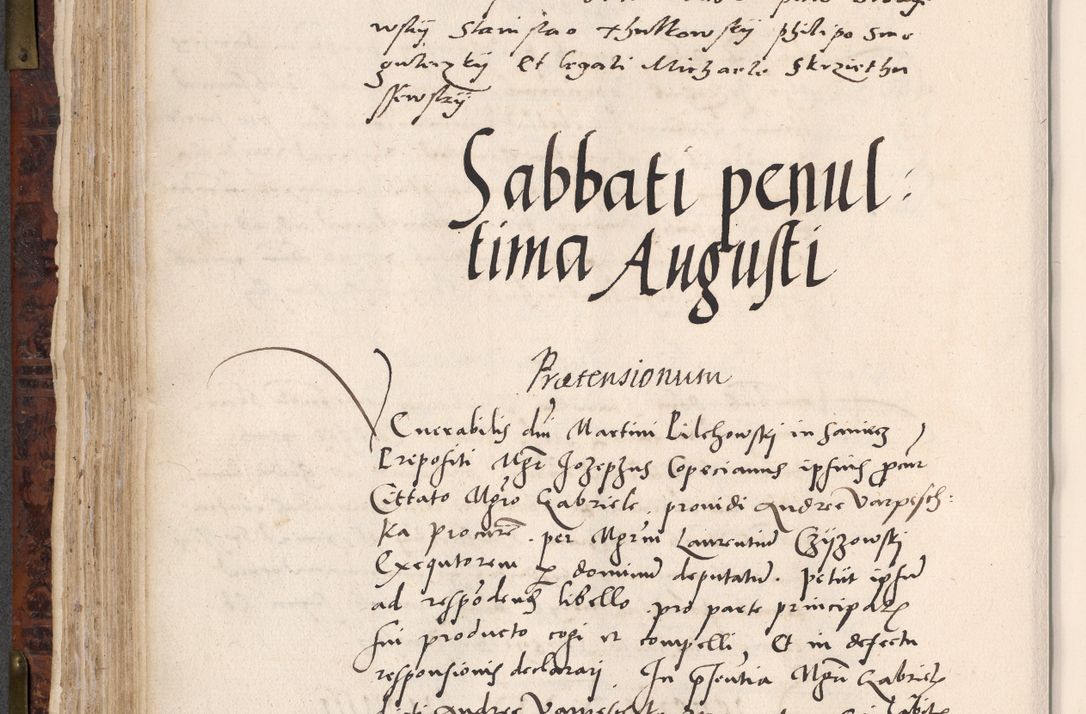 wskÿ Stanislao Thulkowskÿ philipo Smo
guleczkÿ Et legati Michaele Skrziethu
ssewskÿ
Sabbati penul:
tima Augusti
Prætensionum
Venerabilis dni Martini Pilchowskÿ in Saniecz
Prepositi Mgr Jozephus Copecianus ipsius prour
Cittato Mgro Gabriele providi Andree Varpesch:
ka procure per Mgrm Laurentium Czÿzowskÿ
Exequtorem p dominum deputatum. Petiit ipsum
ad respondendum libello pro parte principalis
sui producto cogi et compelli, Et in defectu
responsionis declarari In pñtia Mgri Gabrielis
dicti Andree